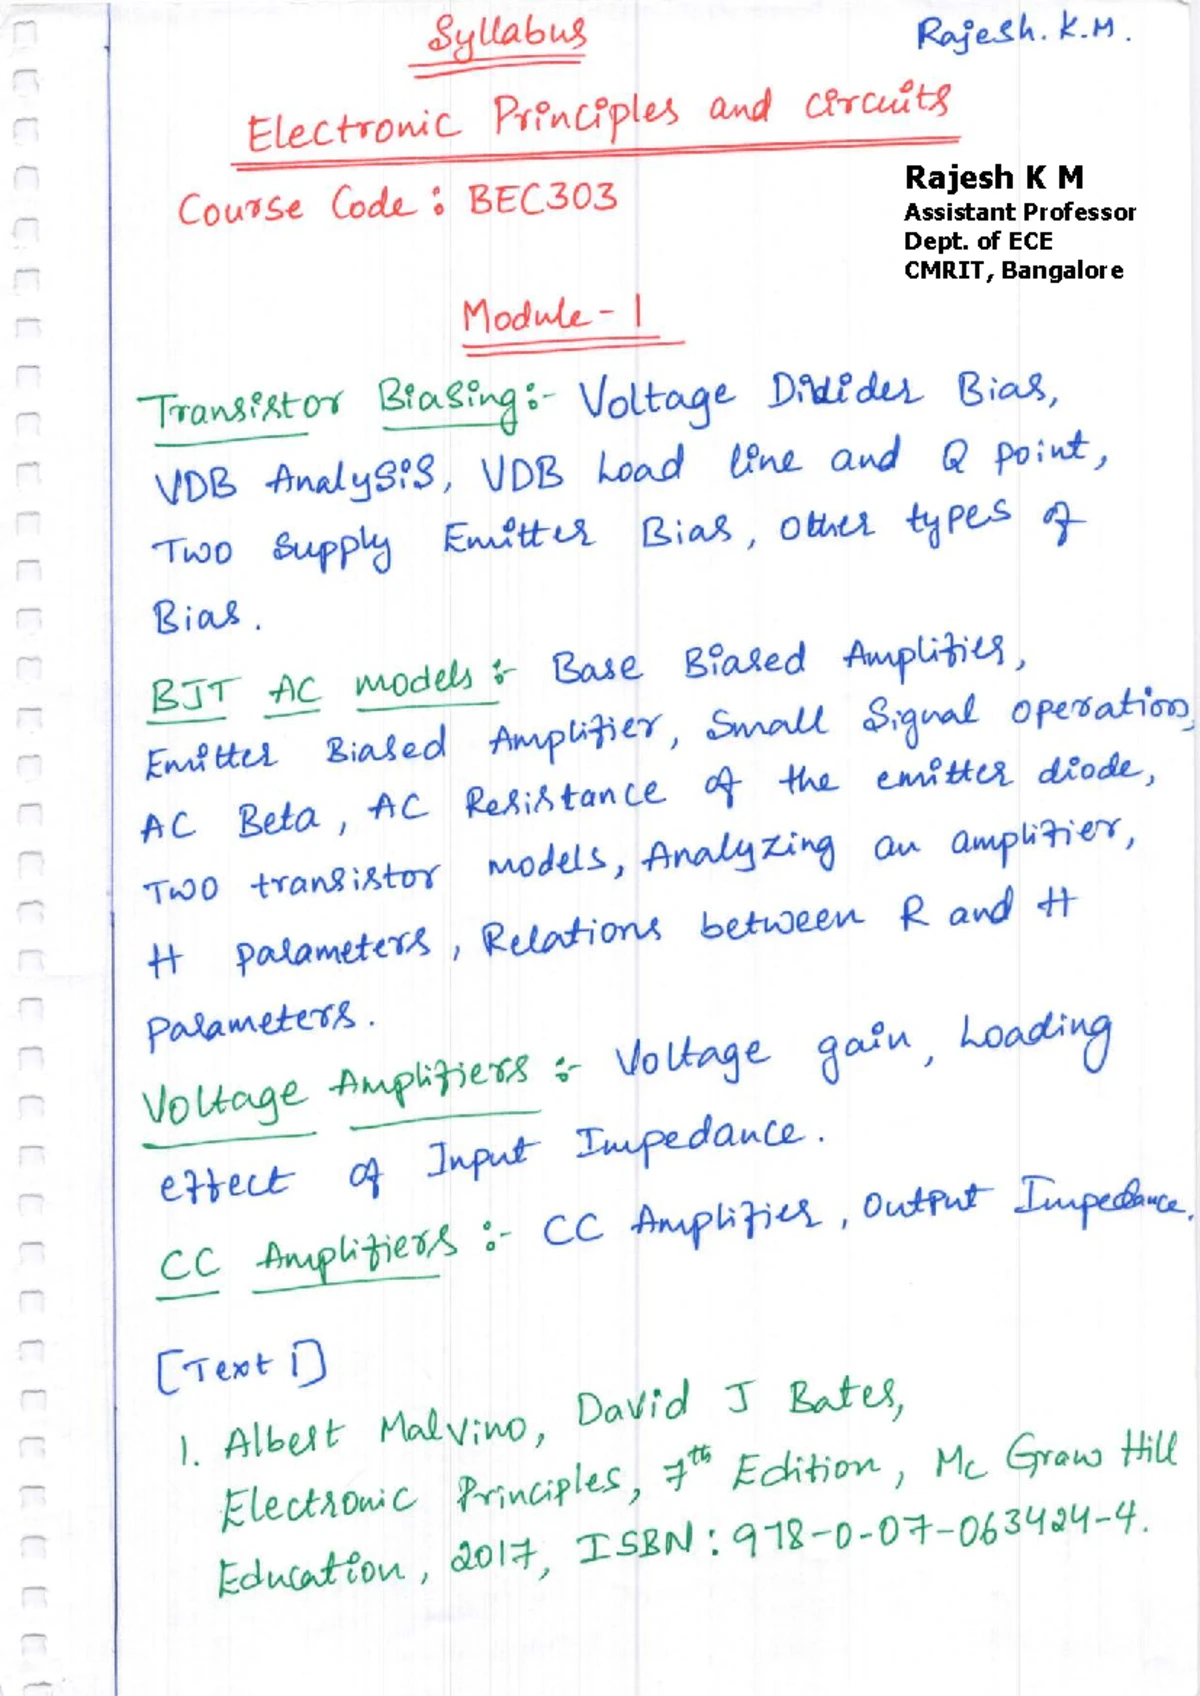 Syllabus
Rajesh. K.M.
Electronic Principles and circuits
Course Code : BEC303
Rajesh K M
Assistant Professor
Dept. of ECE
CMRIT, Bangalore
Module - 1
Transistor Biasing :- Voltage Divider Bias,
VDB Analysis, VDB Load line and Q point,
Two Supply Emitter Bias, other types of
Bias.
BJT AC models :- Base Biased Amplifier,
Emitter Biased Amplifier, Small Signal operation,
AC Beta, AC Resistance of the emitter diode,
Two transistor models, Analyzing an amplifier,
H parameters, Relations between R and H
parameters.
Voltage Amplifiers :- Voltage gain, Loading
effect of Input Impedance.
CC Amplifiers :- CC Amplifier, Output Impedance.
[Text 1]
1. Albert Malvino, David J Bates,
Electronic Principles, 7th Edition, Mc Graw Hill
Education, 2017, ISBN : 978-0-07-063424-4.